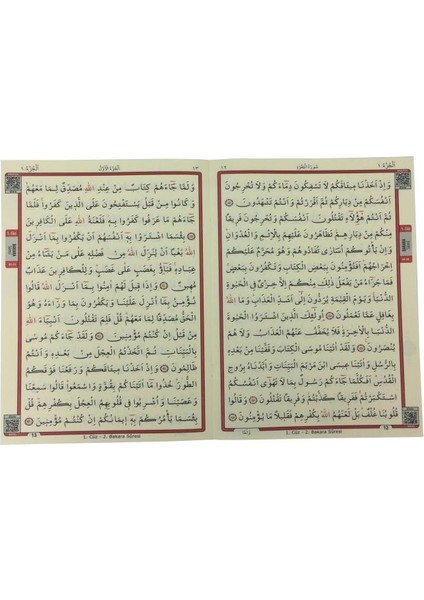 اَلْجُزْءُ ١
سُورَةُ الْبَقَرَةِ
١٢
وَاِذْ اَخَذْنَا مِيثَاقَكُمْ لَا تَسْفِكُونَ دِمَٓاءَكُمْ وَلَا تُخْرِجُونَ
اَنْفُسَكُمْ مِنْ دِيَارِكُمْ ثُمَّ اَقْرَرْتُمْ وَاَنْتُمْ تَشْهَدُونَ
ثُمَّ اَنْتُمْ هٰٓؤُلَٓاءِ تَقْتُلُونَ اَنْفُسَكُمْ وَتُخْرِجُونَ فَرِيقًا
مِنْكُمْ مِنْ دِيَارِهِمْ تَظَاهَرُونَ عَلَيْهِمْ بِالْاِثْمِ وَالْعُدْوَانِ
وَاِنْ يَأْتُوكُمْ اُسَارٰى تُفَادُوهُمْ وَهُوَ مُحَرَّمٌ عَلَيْكُمْ
اِخْرَاجُهُمْ اَفَتُؤْمِنُونَ بِبَعْضِ الْكِتَابِ وَتَكْفُرُونَ بِبَعْضٍ
فَمَا جَزَٓاءُ مَنْ يَفْعَلُ ذٰلِكَ مِنْكُمْ اِلَّا خِزْيٌ فِي الْحَيٰوةِ
الدُّنْيَا وَيَوْمَ الْقِيٰمَةِ يُرَدُّونَ اِلٰٓى اَشَدِّ الْعَذَابِ وَمَا اللّٰهُ
بِغَافِلٍ عَمَّا تَعْمَلُونَ اُو۬لٰٓئِكَ الَّذِينَ اشْتَرَوُا الْحَيٰوةَ
الدُّنْيَا بِالْاٰخِرَةِ فَلَا يُخَفَّفُ عَنْهُمُ الْعَذَابُ وَلَا هُمْ
يُنْصَرُونَ وَلَقَدْ اٰتَيْنَا مُوسَى الْكِتَابَ وَقَفَّيْنَا مِنْ بَعْدِهِ
بِالرُّسُلِ وَاٰتَيْنَا عِيسَى ابْنَ مَرْيَمَ الْبَيِّنَاتِ وَاَيَّدْنَاهُ بِرُوحِ
الْقُدُسِ اَفَكُلَّمَا جَٓاءَكُمْ رَسُولٌ بِمَا لَا تَهْوٰٓى اَنْفُسُكُمُ
اسْتَكْبَرْتُمْ فَفَرِيقًا كَذَّبْتُمْ وَفَرِيقًا تَقْتُلُونَ وَقَالُوا
قُلُوبُنَا غُلْفٌ بَلْ لَعَنَهُمُ اللّٰهُ بِكُفْرِهِمْ فَقَلِيلًا مَا يُؤْمِنُونَ
وَلَمَّا
1. Cüz - 2. Bakara Sûresi
12
١٣
اَلْجُزْءُ الْاَوَّلُ
اَلْجُزْءُ ١
وَلَمَّا جَٓاءَهُمْ كِتَابٌ مِنْ عِنْدِ اللّٰهِ مُصَدِّقٌ لِمَا مَعَهُمْ
وَكَانُوا مِنْ قَبْلُ يَسْتَفْتِحُونَ عَلَى الَّذِينَ كَفَرُوا فَلَمَّا
جَٓاءَهُمْ مَا عَرَفُوا كَفَرُوا بِهِ فَلَعْنَةُ اللّٰهِ عَلَى الْكَافِرِينَ
بِئْسَمَا اشْتَرَوْا بِهِٓ اَنْفُسَهُمْ اَنْ يَكْفُرُوا بِمَٓا اَنْزَلَ
اللّٰهُ بَغْيًا اَنْ يُنَزِّلَ اللّٰهُ مِنْ فَضْلِهِ عَلٰى مَنْ يَشَٓاءُ مِنْ
عِبَادِهِ فَبَٓاؤُ بِغَضَبٍ عَلٰى غَضَبٍ وَلِلْكَافِرِينَ عَذَابٌ
مُهِينٌ وَاِذَا قِيلَ لَهُمْ اٰمِنُوا بِمَٓا اَنْزَلَ اللّٰهُ قَالُوا
نُؤْمِنُ بِمَٓا اُنْزِلَ عَلَيْنَا وَيَكْفُرُونَ بِمَا وَرَٓاءَهُ وَهُوَ
الْحَقُّ مُصَدِّقًا لِمَا مَعَهُمْ قُلْ فَلِمَ تَقْتُلُونَ اَنْبِيَٓاءَ اللّٰهِ
مِنْ قَبْلُ اِنْ كُنْتُمْ مُؤْمِنِينَ وَلَقَدْ جَٓاءَكُمْ مُوسٰى
بِالْبَيِّنَاتِ ثُمَّ اتَّخَذْتُمُ الْعِجْلَ مِنْ بَعْدِهِ وَاَنْتُمْ
ظَالِمُونَ وَاِذْ اَخَذْنَا مِيثَاقَكُمْ وَرَفَعْنَا فَوْقَكُمُ
الطُّورَ خُذُوا مَٓا اٰتَيْنَاكُمْ بِقُوَّةٍ وَاسْمَعُوا قَالُوا سَمِعْنَا
وَعَصَيْنَا وَاُشْرِبُوا فِي قُلُوبِهِمُ الْعِجْلَ بِكُفْرِهِمْ قُلْ
بِئْسَمَا يَأْمُرُكُمْ بِهِٓ اِيمَانُكُمْ اِنْ كُنْتُمْ مُؤْمِنِينَ
13
1. Cüz - 2. Bakara Sûresi